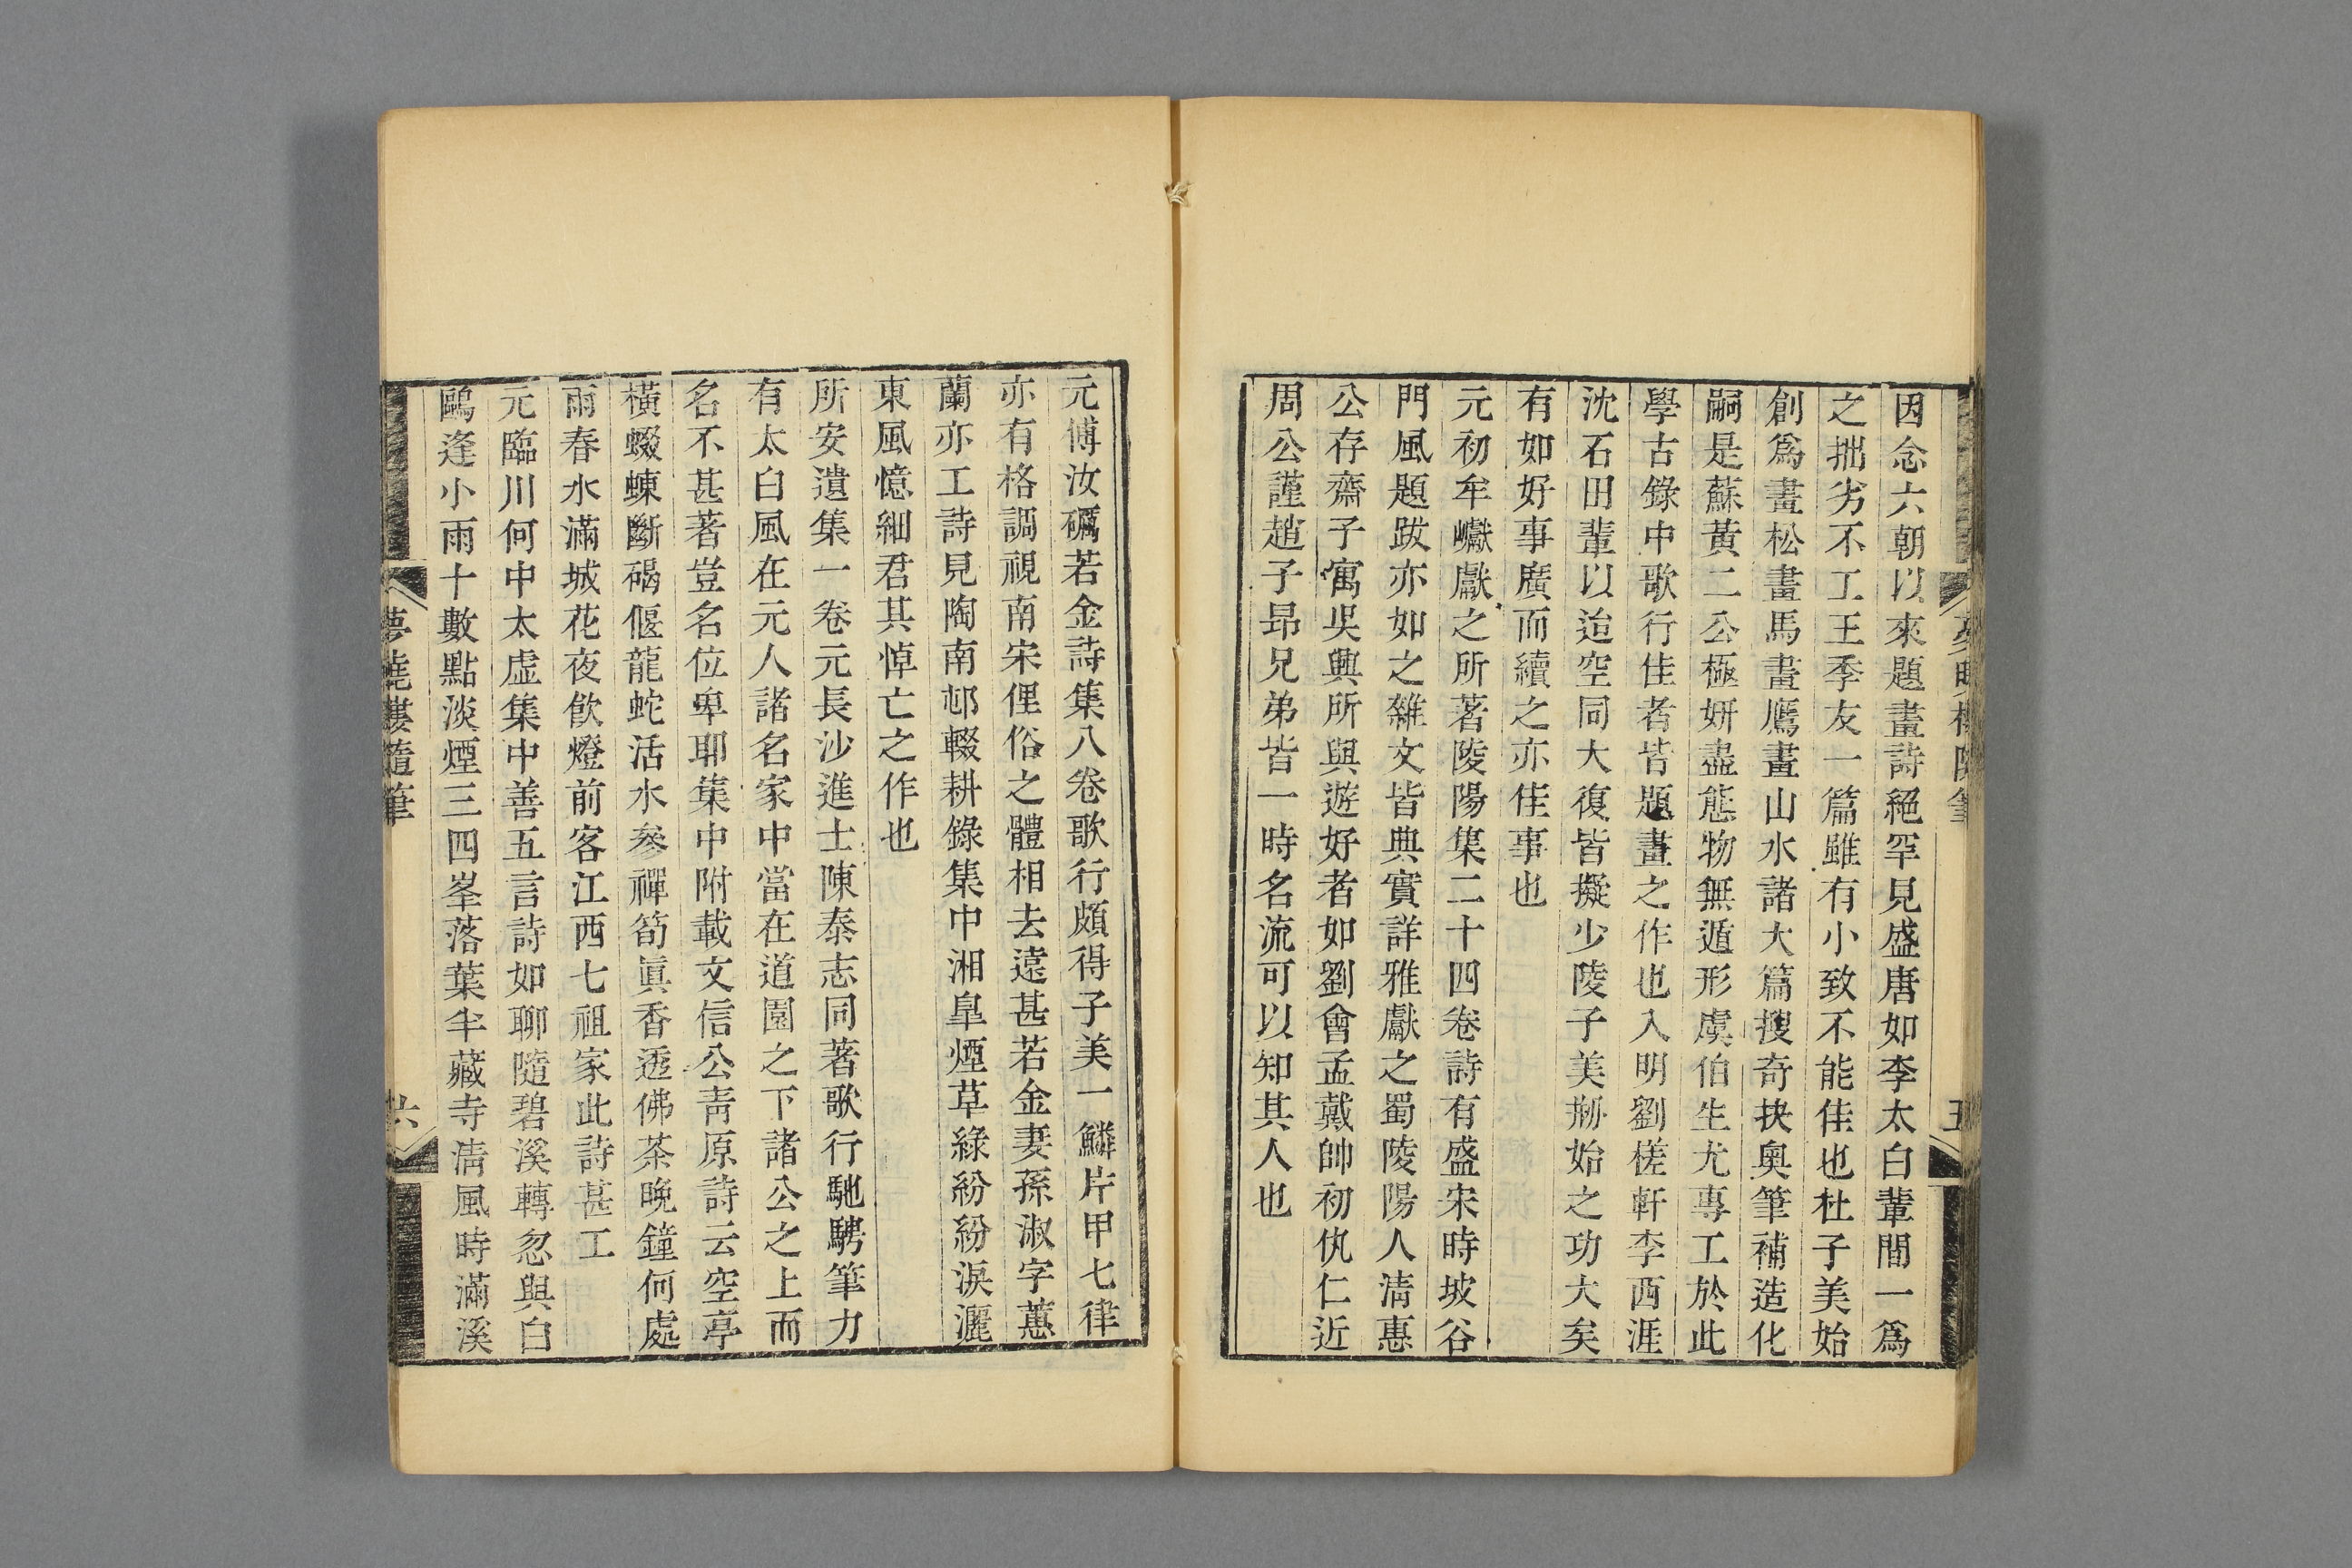 因念六朝以來題畫詩絕罕見盛唐如李太白輩間一爲
之拙劣不工王季友一篇雖有小致不能佳也杜子美始
創爲畫松畫馬畫鷹畫山水諸大篇搜奇抉奧筆補造化
嗣是蘇黃二公極妍盡態物無遁形虞伯生尤專工於此
學古錄中歌行佳者皆題畫之作也入明劉槎軒李西涯
沈石田輩以迨空同大復皆擬少陵子美刱始之功大矣
有如好事廣而續之亦佳事也
元初牟巘獻之所著陵陽集二十四卷詩有盛宋時坡谷
門風題跋亦如之雜文皆典實詳雅獻之蜀陵陽人淸惠
公存齋子寓吳興所與遊好者如劉會孟戴帥初仇仁近
周公謹趙子昂兄弟皆一時名流可以知其人也
元傅汝礪若金詩集八卷歌行頗得子美一鱗片甲七律
亦有格調視南宋俚俗之體相去遠甚若金妻孫淑字蕙
蘭亦工詩見陶南邨輟耕錄集中湘臯煙草綠紛紛淚灑
東風憶細君其悼亡之作也
所安遺集一卷元長沙進士陳泰志同著歌行馳騁筆力
有太白風在元人諸名家中當在道園之下諸公之上而
名不甚著豈名位卑耶集中附載文信公靑原詩云空亭
橫蝃蝀斷碣偃龍蛇活水參禪筍眞香透佛茶晚鐘何處
雨春水滿城花夜飮燈前客江西七祖家此詩甚工
元臨川何中太虛集中善五言詩如聊隨碧溪轉忽與白
鷗逢小雨十數點淡煙三四峯落葉半藏寺淸風時滿溪
夢曉樓隨筆
六